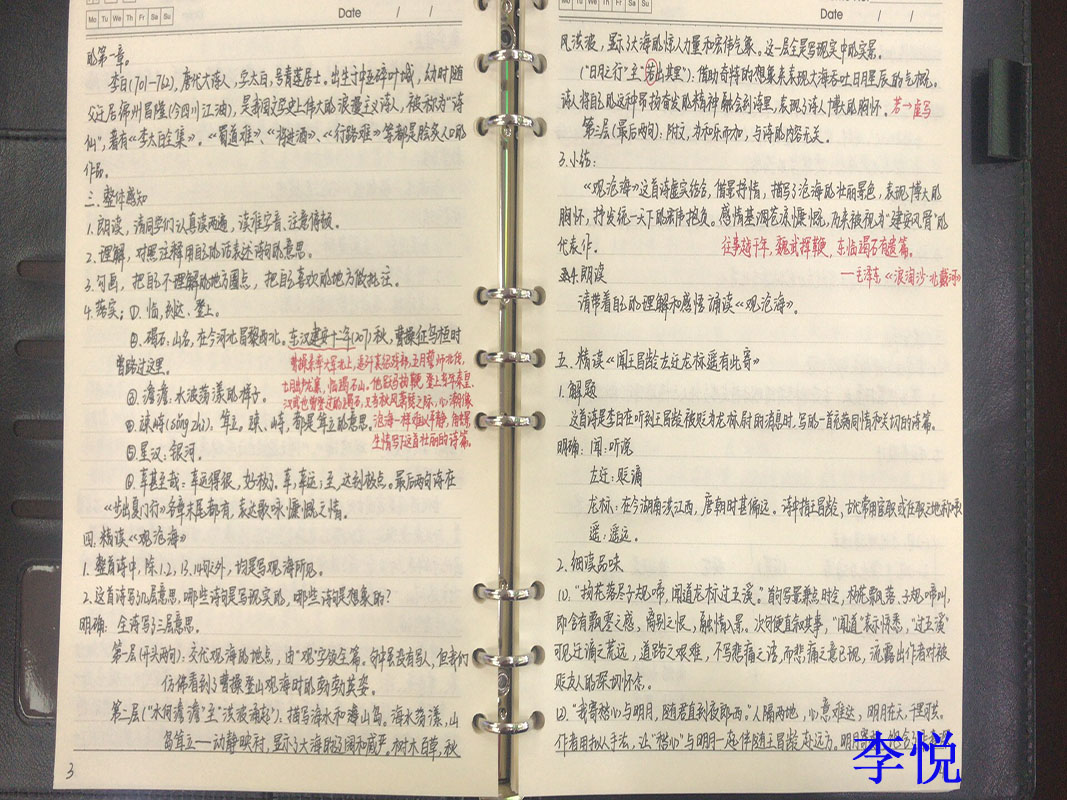 Mo Tu We Th Fr Sa Su
Date / /
的第一章。
李白(701-762),唐代大诗人,字太白,号青莲居士。出生于中亚碎叶城,幼时随
父迁居绵州昌隆(今四川江油),是我国文学史上伟大的浪漫主义诗人,被称为“诗
仙”,著有《李太白全集》。《蜀道难》、《将进酒》、《行路难》等都是脍炙人口的
作品。
三、整体感知
1.朗读,请同学们认真读两遍,读准字音、注意停顿。
2.理解,对照注释用自己的话表达诗句的意思。
3.勾画,把自己不理解的地方圈点,把自己喜欢的地方做批注。
4.落实:①.临,到达、登上。
②.碣石:山名,在今河北昌黎西北。东汉建安十二年(207)秋,曹操征乌桓时
曾路过这里。
曹操亲率大军北上,五月誓师北伐,
七月出卢龙寨,临碣石山。他跃马扬鞭,登上当年秦皇、
汉武也曾登过的碣石,又当秋风萧瑟之际,心潮像
沧海一样难以平静,借景
生情写下这首壮丽的诗篇。
③.澹澹:水波荡漾的样子。
④.竦峙(sǒng zhì).耸立。竦、峙,都是耸立的意思。
⑤星汉:银河。
⑥.幸甚至哉:幸运得很,好极了。幸,幸运;至,达到极点。最后两句诗在
《步出夏门行》每章末尾都有,表达歌咏慷慨之情。
四.精读《观沧海》
1.整首诗中,除1.2,13.14句以外,均是写观海所见。
2.这首诗写几层意思,哪些诗句是写现实的,哪些诗句是想象的?
明确:全诗写了三层意思。
第一层(开头两句):交代观海的地点,由“观”字领全篇。句中虽没有写人,但我们
仿佛看到了曹操登山观海时的勃勃英姿。
第二层(“水何澹澹”至“洪波涌起”).描写海水和海山岛。海水荡漾,山
岛耸立——动静映衬,显示了大海的辽阔和威严。树木百草,秋
3
Mo Tu We Th Fr Sa Su
Date / /
风洪波,显示了大海的惊人力量和宏伟气象。这一层全是写现实中的实景.
(“日月之行”至“若出其里”):借助奇特的想象来表现大海吞吐日月星辰的气概。
诗人将自己的这种昂扬奋发的精神融会到诗里,表现了诗人博大的胸怀。若→虚写
第三层(最后两句).附文,为和乐而加,与诗的内容无关。
3.小结:
《观沧海》这首诗虚实结合,借景抒情,描写了沧海的壮丽景色,表现了博大的
胸怀,抒发统一天下的宏伟抱负。感情基调苍凉慷慨,历来被视为“建安风骨”的
代表作。
往事越千年,魏武挥鞭,东临碣石有遗篇。
——毛泽东《浪淘沙·北戴河》
4.朗读
请带着自己的理解和感悟诵读《观沧海》。
五.精读《闻王昌龄左迁龙标遥有此寄》
1.解题
这首诗是李白在听到王昌龄被贬为龙标尉的消息时,写的一首充满同情和关切的诗篇。
明确:闻:听说
左迁:贬谪
龙标:在今湖南洪江西,唐朝时甚偏远。诗中指王昌龄,古代常用官职或任职之地称呼
遥:遥远。
2.细读品味
(1).“杨花落尽子规啼,闻道龙标过五溪”。首句写景兼点时令,杨花飘落、子规啼叫,
即含有飘零之感,离别之恨,融情入景。次句便直叙其事,“闻道”表示惊悉,“过五溪”
可见迁谪之荒远,道路之艰难,不写悲痛之语,而悲痛之意已现,流露出作者对被
贬友人的深切怀念。
(2).“我寄愁心与明月,随君直到夜郎西。”人隔两地,心意难达,明月在天,千里可共。
作者用拟人手法,让“愁心”与明月一起伴随王昌龄赴远方。
李悦